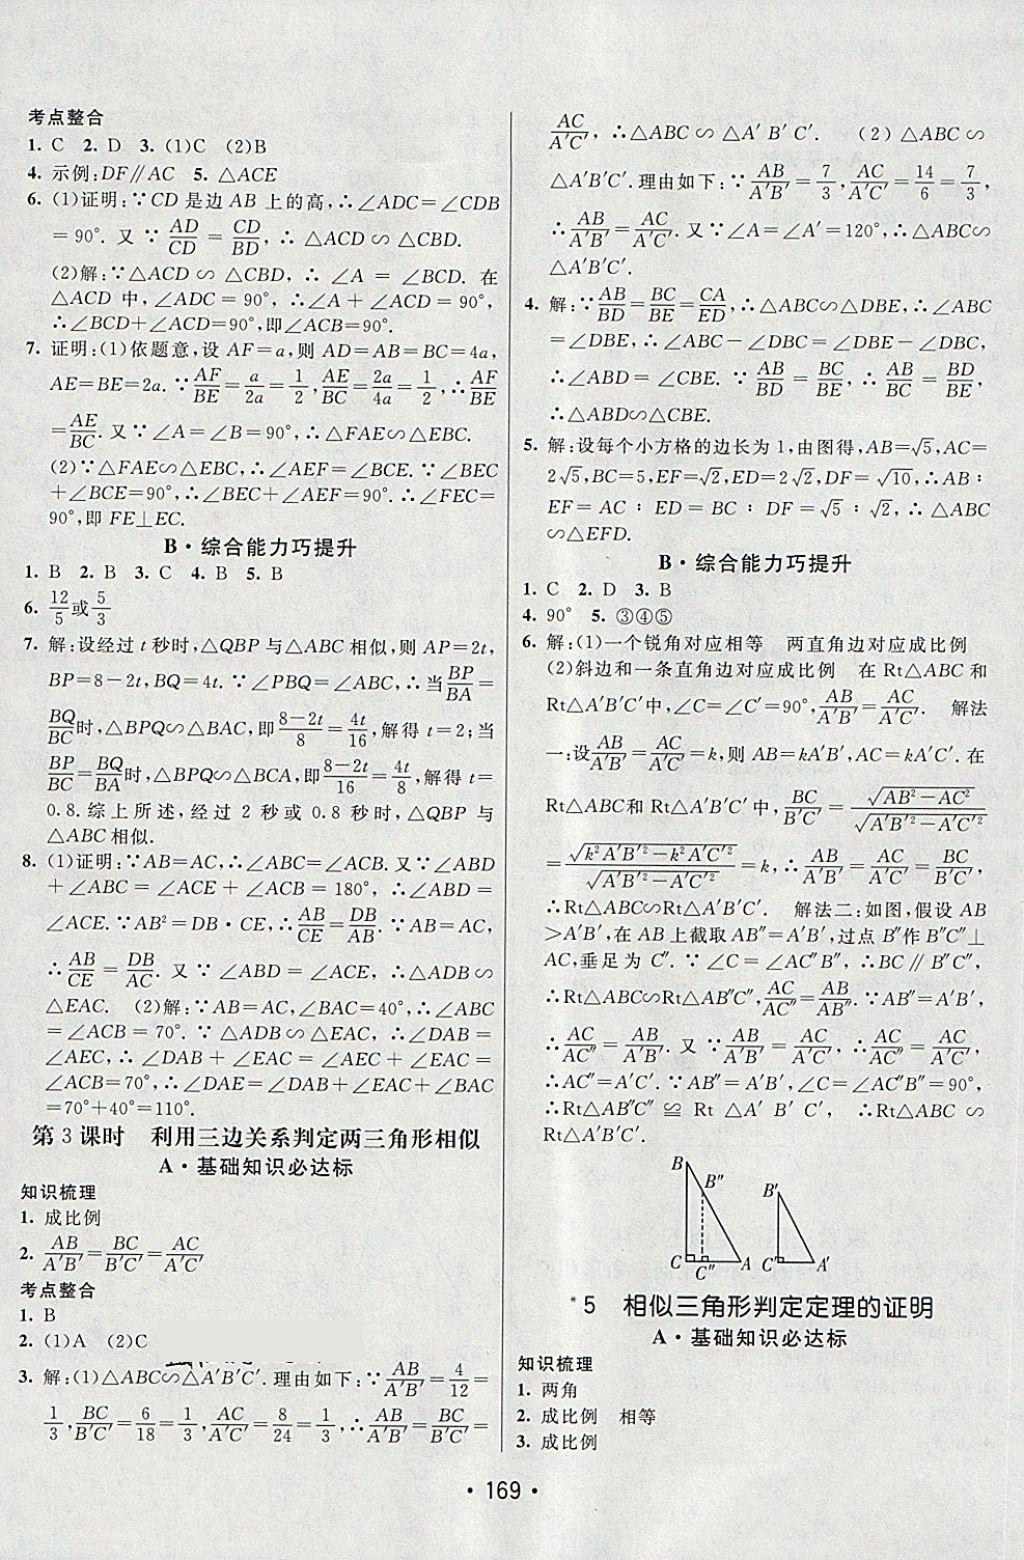 考点整合
1. C  2. D  3. (1)C  (2)B
4. 示例:DF∥AC  5. △ACE
6. (1)证明:∵CD 是边 AB 上的高,∴∠ADC=∠CDB
=90°. 又 ∵ AD/CD = CD/BD, ∴ △ACD∽△CBD.
(2)解:∵△ACD ∽ △CBD, ∴ ∠A = ∠BCD. 在
△ACD 中,∠ADC = 90°, ∴∠A + ∠ACD = 90°,
∴∠BCD+∠ACD=90°,即∠ACB=90°.
7. 证明:(1)依题意,设 AF=a,则 AD=AB=BC=4a,
AE=BE=2a. ∵AF/BE=a/2a=1/2,AE/BC=2a/4a=1/2,∴AF/BE
=AE/BC. 又∵∠A=∠B=90°,∴△FAE∽△EBC.
(2)∵△FAE∽△EBC,∴∠AEF=∠BCE. ∵∠BEC
+∠BCE=90°,∴∠BEC+∠AEF=90°. ∴∠FEC=
90°,即 FE⊥EC.
B·综合能力巧提升
1. B  2. B  3. C  4. B  5. B
6. 12/5或5/3
7. 解:设经过 t 秒时,△QBP 与△ABC 相似,则 AP=2t,
BP=8-2t,BQ=4t. ∵∠PBQ=∠ABC,∴当BP/BA=
BQ/BC时,△BPQ∽△BAC,即(8-2t)/8=4t/16,解得 t=2;当
BP/BC=BQ/BA时,△BPQ∽△BCA,即(8-2t)/16=4t/8,解得 t=
0.8.综上所述,经过 2 秒或 0.8 秒时,△QBP 与
△ABC 相似.
8. (1)证明:∵AB=AC,∴∠ABC=∠ACB. 又∵∠ABD
+∠ABC=∠ACE+∠ACB=180°, ∴∠ABD=
∠ACE. ∵AB²=DB·CE,∴AB/CE=DB/AB. ∵AB=AC,
∴AB/CE=DB/AC. 又 ∵ ∠ABD = ∠ACE, ∴△ADB∽
△EAC.  (2)解:∵AB=AC,∠BAC=40°,∴∠ABC
=∠ACB=70°. ∵ △ADB∽△EAC, ∴∠DAB=
∠AEC,∴∠DAB+∠EAC=∠AEC+∠EAC=
∠ACB=70°,∴∠DAE=∠DAB+∠EAC+∠BAC
=70°+40°=110°.
第 3 课时  利用三边关系判定两三角形相似
A·基础知识必达标
知识梳理
1. 成比例
2. AB/A′B′=BC/B′C′=AC/A′C′
考点整合
1. B
2. (1)A  (2)C
3. 解:(1)△ABC∽△A′B′C′.理由如下:∵AB/A′B′=4/12=
1/3,BC/B′C′=6/18=1/3,AC/A′C′=8/24=1/3,∴AB/A′B′=BC/B′C′=
AC/A′C′,∴△ABC∽△A′B′C′.  (2)△ABC∽
△A′B′C′.理由如下:∵AB/A′B′=7/3,AC/A′C′=14/6=7/3,
∴AB/A′B′=AC/A′C′. 又∵∠A=∠A′=120°,∴△ABC∽
△A′B′C′.
4. 解:∵AB/BD=BC/BE=CA/ED,∴△ABC∽△DBE,∴∠ABC
=∠DBE,∴∠ABC-∠DBC=∠DBE-∠DBC,
∴∠ABD=∠CBE. ∵AB/BD=BC/BE,∴AB/BC=BD/BE,
∴△ABD∽△CBE.
5. 解:设每个小方格的边长为 1,由图得,AB=√5,AC=
2√5,BC=5,EF=√2,ED=2√2,DF=√10,∴AB∶
EF=AC∶ED=BC∶DF=√5∶√2,∴△ABC
∽△EFD.
B·综合能力巧提升
1. C  2. D  3. B
4. 90°  5. ③④⑤
6. 解:(1)一个锐角对应相等  两直角边对应成比例
(2)斜边和一条直角边对应成比例  在 Rt△ABC 和
Rt△A′B′C′中,∠C=∠C′=90°,AB/A′B′=AC/A′C′.  解法
一:设AB/A′B′=AC/A′C′=k,则 AB=kA′B′,AC=kA′C′. 在
Rt△ABC和 Rt△A′B′C′中,BC/B′C′=√(AB²-AC²)/√(A′B′²-A′C′²)
=√(k²A′B′²-k²A′C′²)/√(A′B′²-A′C′²)=k,∴AB/A′B′=AC/A′C′=BC/B′C′,
∴Rt△ABC∽Rt△A′B′C′.  解法二:如图,假设 AB
>A′B′,在 AB 上截取 AB″=A′B′,过点 B″作 B″C″⊥
AC,垂足为 C″. ∵∠C=∠AC″B″,∴BC∥B″C″,
∴Rt△ABC∽Rt△AB″C″,AC/AC″=AB/AB″. ∵AB″=A′B′,
∴AC/AC″=AB/A′B′. 又 ∵AB/A′B′=AC/A′C′, ∴AC/AC″=AC/A′C′,
∴AC″=A′C′. ∵AB″=A′B′,∠C′=∠AC″B″=90°,
∴Rt△AB″C″ ≌ Rt△A′B′C′, ∴Rt△ABC ∽
Rt△A′B′C′.
B B″ B′
C C″ A C′ A′
*5  相似三角形判定定理的证明
A·基础知识必达标
知识梳理
1. 两角
2. 成比例  相等
3. 成比例
·169·